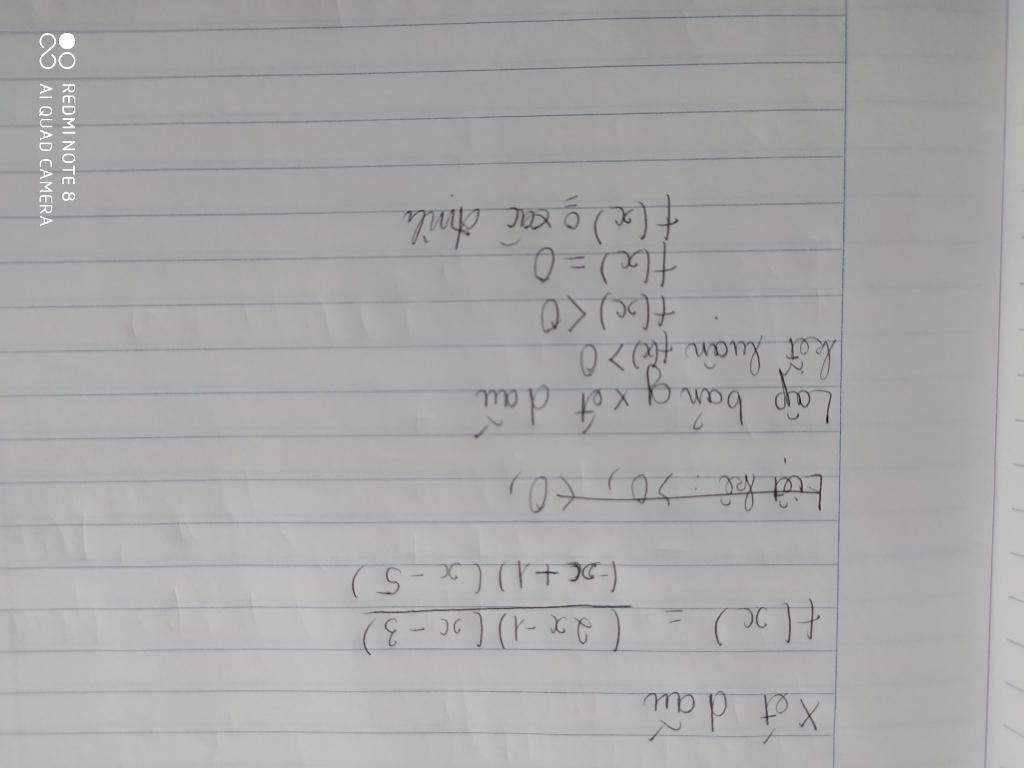 Xét dấu
f(x) = (2x-1)(x-3)
(-x+1)(x-5)
Liệt kê : >0, <0,
Lập bảng xét dấu
kết luận f(x) > 0
f(x) < 0
f(x) = 0
f(x) = 0 xác định
REDMI NOTE 8
AI QUAD CAMERA